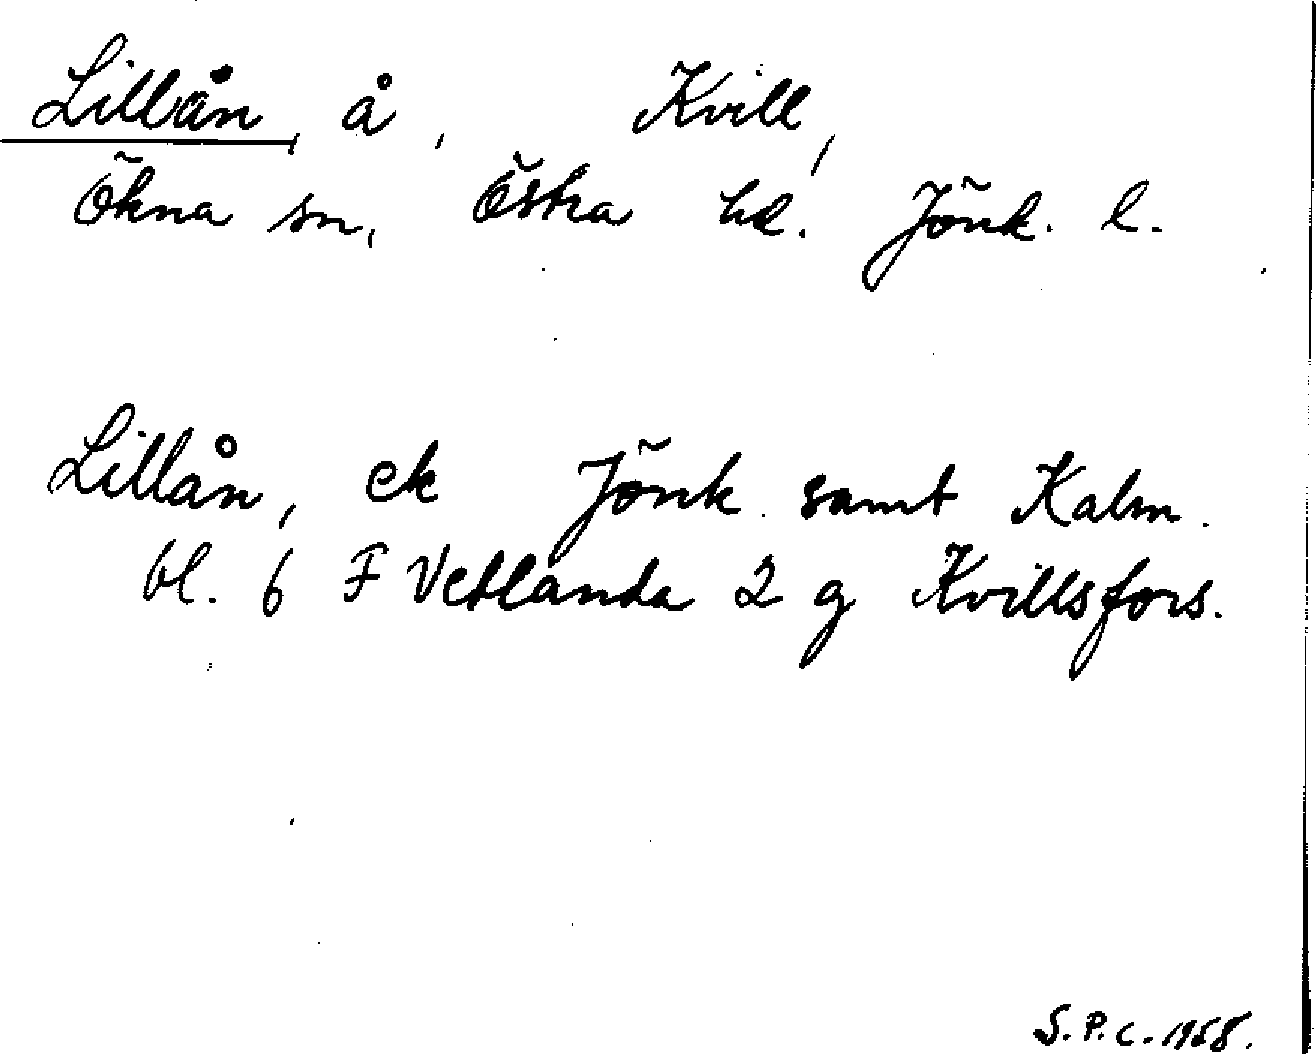 Lillån, å, Kvill,
Ökna sn, Östra hd. Jönk. l.
Lillån, ek Jönk. samt Kalm.
bl. 6 F Vetlanda 2 g Kvillsfors.
S.P.C. 1958.